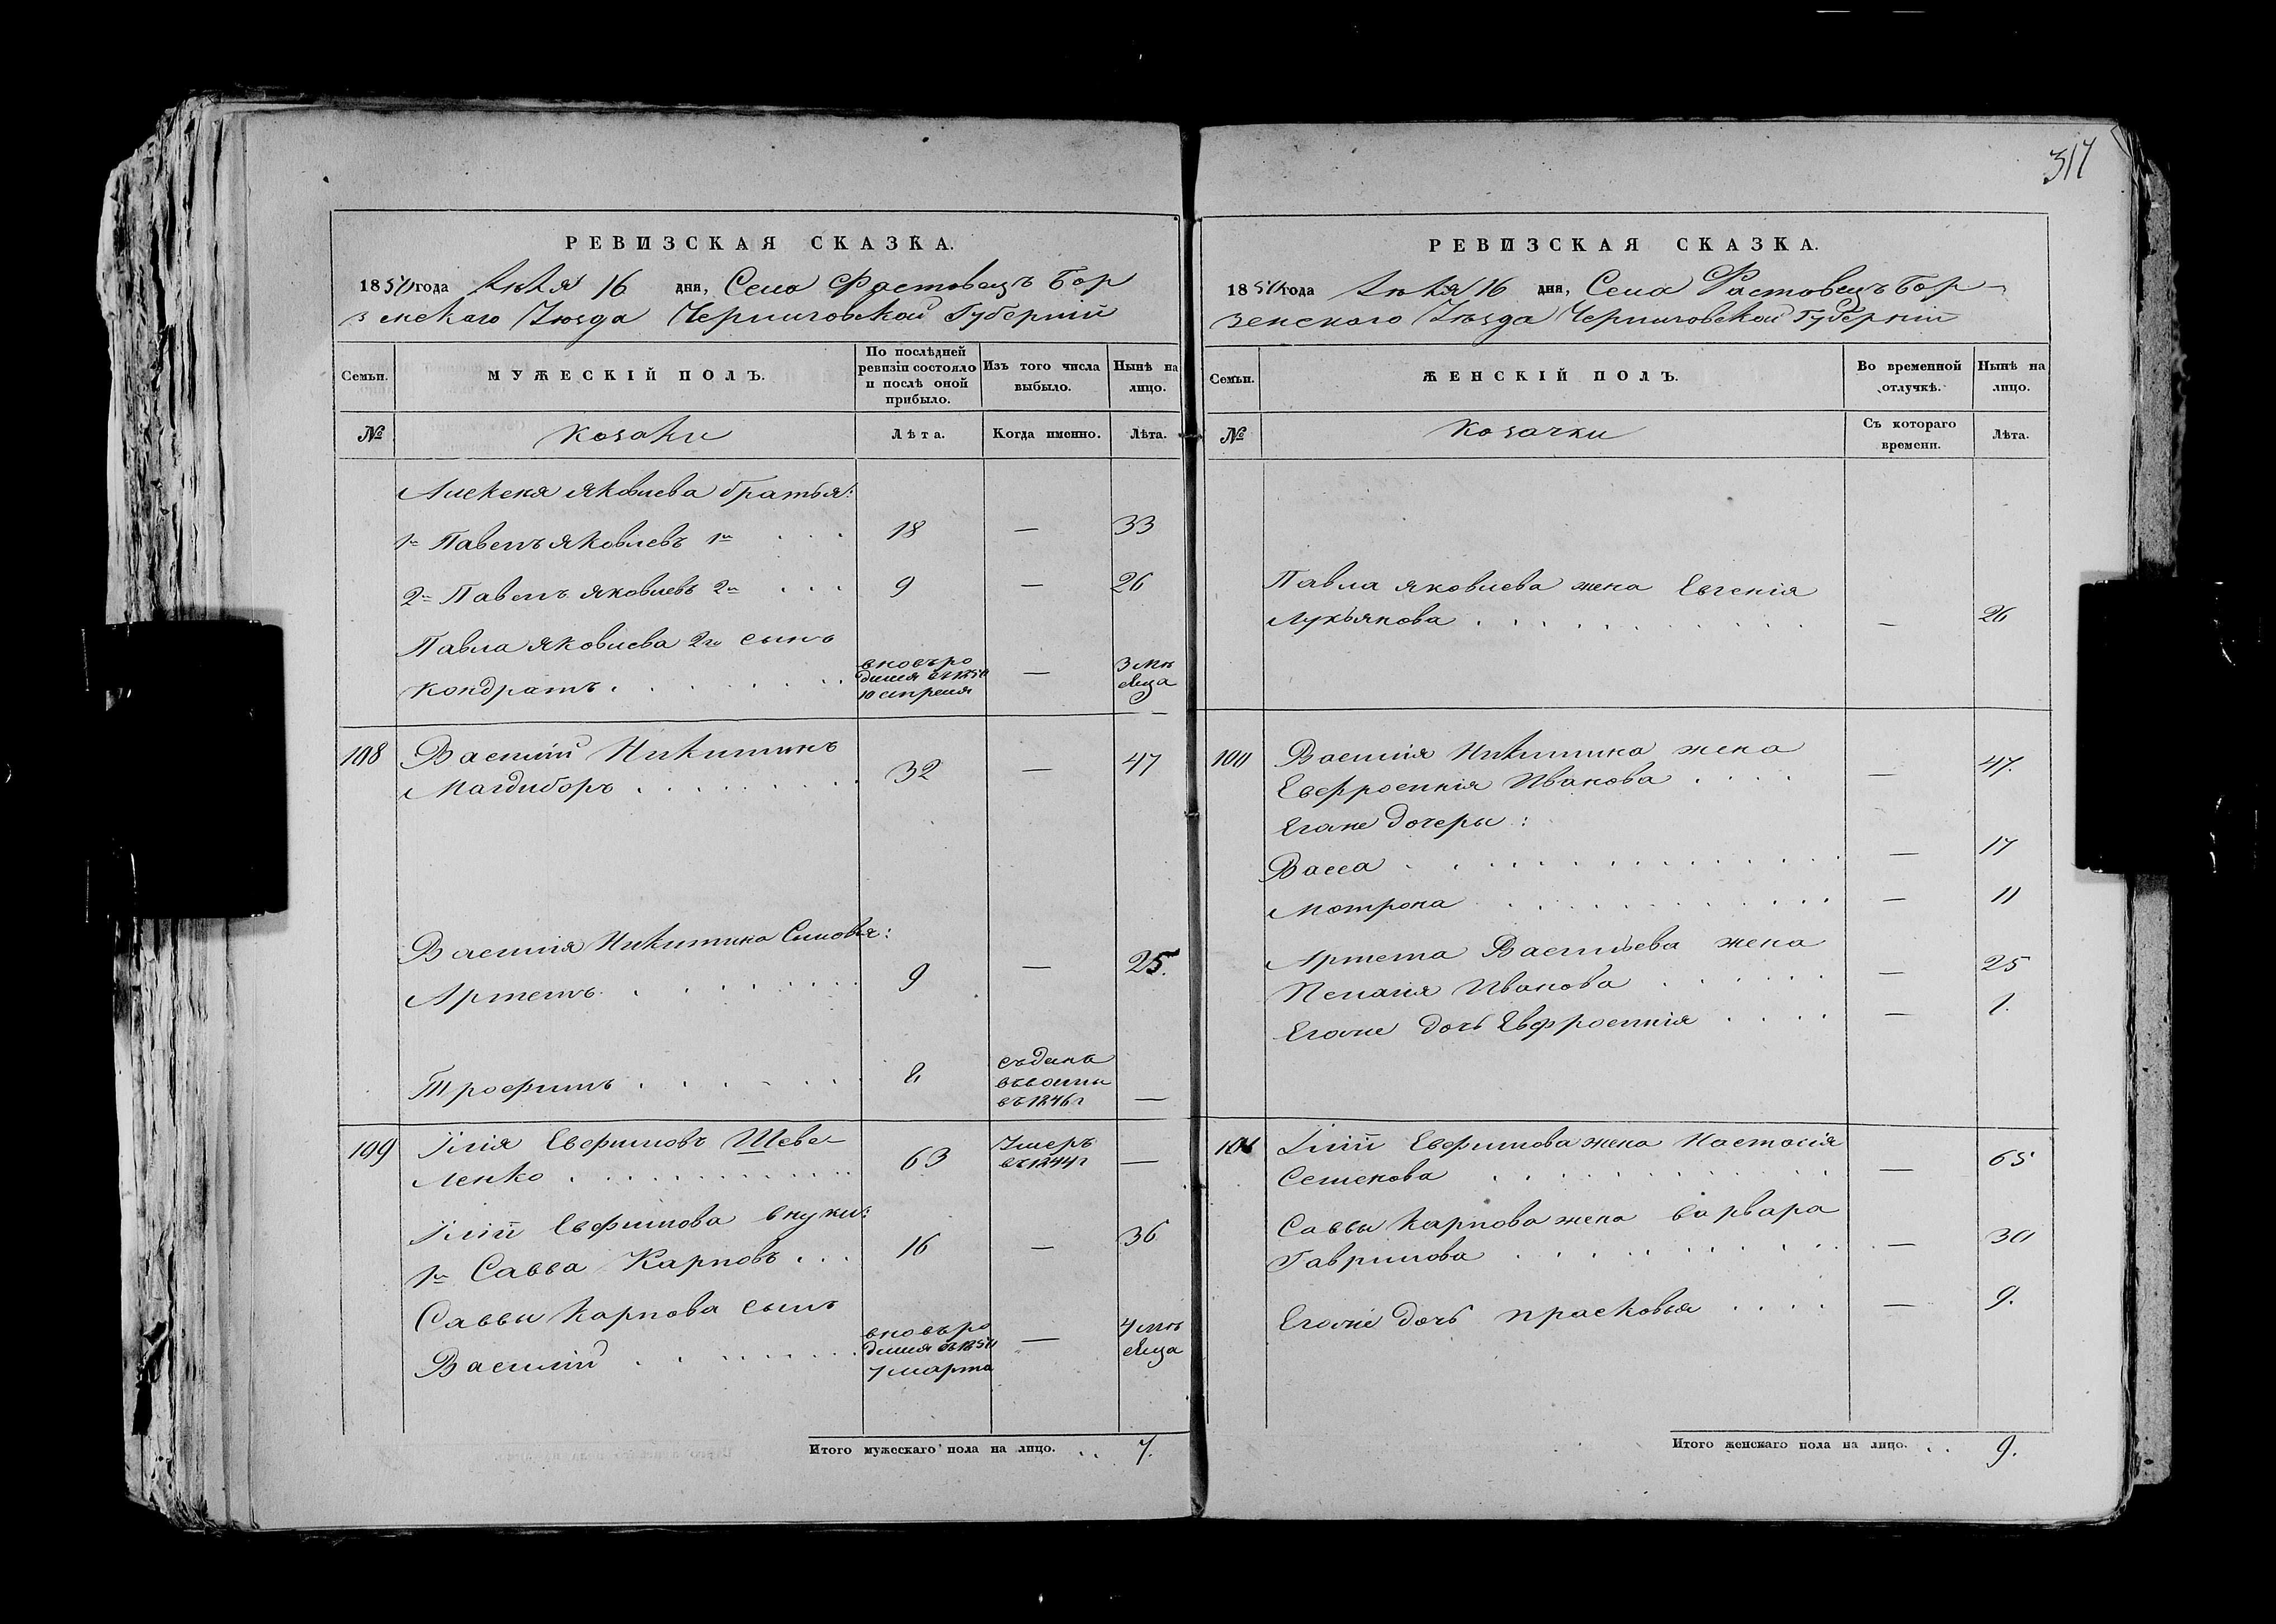 317
РЕВИЗСКАЯ СКАЗКА.
1850 года Іюля 16 дня, Села Фастовецъ Бор
зенскаго Уѣзда Черниговской Губерніи
Семьи.
МУЖЕСКІЙ ПОЛЪ.
По послѣдней ревизіи состояло и послѣ оной прибыло.
Изъ того числа выбыло.
Нынѣ на лицо.
№
Козаки
Лѣта.
Когда именно.
Лѣта.
Алексея Яковлева братья:
1й Павелъ Яковлевъ 1й . . . 18 — 33
2й Павелъ Яковлевъ 2й . . . 9 — 26
Павла Яковлева 2го сынъ
Кондратъ . . . вновь ро
дился въ 1850
10 апреля — 3 мѣ
сяца
108 Василий Никитинъ
Магдиборъ . . . 32 — 47
Василія Никитина Сыновья:
Артемъ . . . 9 — 25.
Трофимъ . . . 8 съдань
въ 1846 г —
109 Илія Евфимовъ Шеве-
ленко . . . 63 Умеръ
въ 1844 г —
Иліи Евфимова внуки:
1й Савва Карповъ . . . 16 — 36
Саввы Карпова сынъ
Василій . . . вновь ро
дился въ 1850
7 марта — 4 мѣ
сяца
Итого мужескаго пола на лицо. . . 7.
РЕВИЗСКАЯ СКАЗКА.
1850 года Іюля 16 дня, Села Фастовецъ Бор-
зенскаго Уѣзда Черниговской Губерніи
Семьи.
ЖЕНСКІЙ ПОЛЪ.
Во временной отлучкѣ.
Нынѣ на лицо.
№
Козачки
Съ котораго времени.
Лѣта.
Павла Яковлева жена Евгенія
Лукьянова . . . — 26
100 Василія Никитина жена
Евфросинія Иванова . . . — 47.
Егоже дочери:
Васса . . . — 17
Мотрона . . . — 11
Артема Васильева жена
Пелагия Иванова . . . — 25
Егоже дочь Евфросинія . . . — 1.
101 Иліи Евфимова жена Настасія
Семенова . . . — 65
Саввы Карпова жена Варвара
Гаврилова . . . — 30
Егоже дочь Прасковья . . . — 9.
Итого женскаго пола на лицо. . . 9.